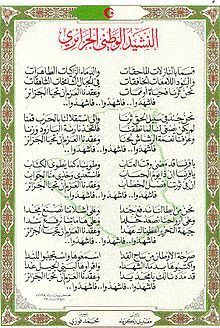 النشيد الوطني الجزائري
قسما بالنازلات الماحقات والدماء الزاكيات الطاهرات
والبنود اللامعات الخافقات في الجبال الشامخات الشاهقات
نحن ثرنا فحياة أو ممات وعقدنا العزم أن تحيا الجزائر
فاشهدوا.. فاشهدوا.. فاشهدوا..
نحن جند في سبيل الحق ثرنا وإلى استقلالنا بالحرب قمنا
لم يكن يصغى لنا لما نطقنا فاتخذنا رنة البارود وزنا
وعزفنا نغمة الرشاش لحنا وعقدنا العزم أن تحيا الجزائر
فاشهدوا.. فاشهدوا.. فاشهدوا..
يا فرنسا قد مضى وقت العتاب وطويناه كما يطوى الكتاب
يا فرنسا إن ذا يوم الحساب فاستعدي وخذي منا الجواب
إن في ثورتنا فصل الخطاب وعقدنا العزم أن تحيا الجزائر
فاشهدوا.. فاشهدوا.. فاشهدوا..
نحن من أبطالنا ندفع جندا وعلى أشلائنا نصنع مجدا
وعلى أرواحنا نصعد خلدا وعلى هاماتنا نرفع بندا
جبهة التحرير أعطيناك عهدا وعقدنا العزم أن تحيا الجزائر
فاشهدوا.. فاشهدوا.. فاشهدوا..
صرخة الأوطان من ساح الفدا اسمعوها واستجيبوا للندا
واكتبوها بدماء الشهدا واقرأوها لبني الجيل غدا
قد مددنا لك يا مجد يدا وعقدنا العزم أن تحيا الجزائر
فاشهدوا.. فاشهدوا.. فاشهدوا..
مفدي زكرياء محمد فوزي